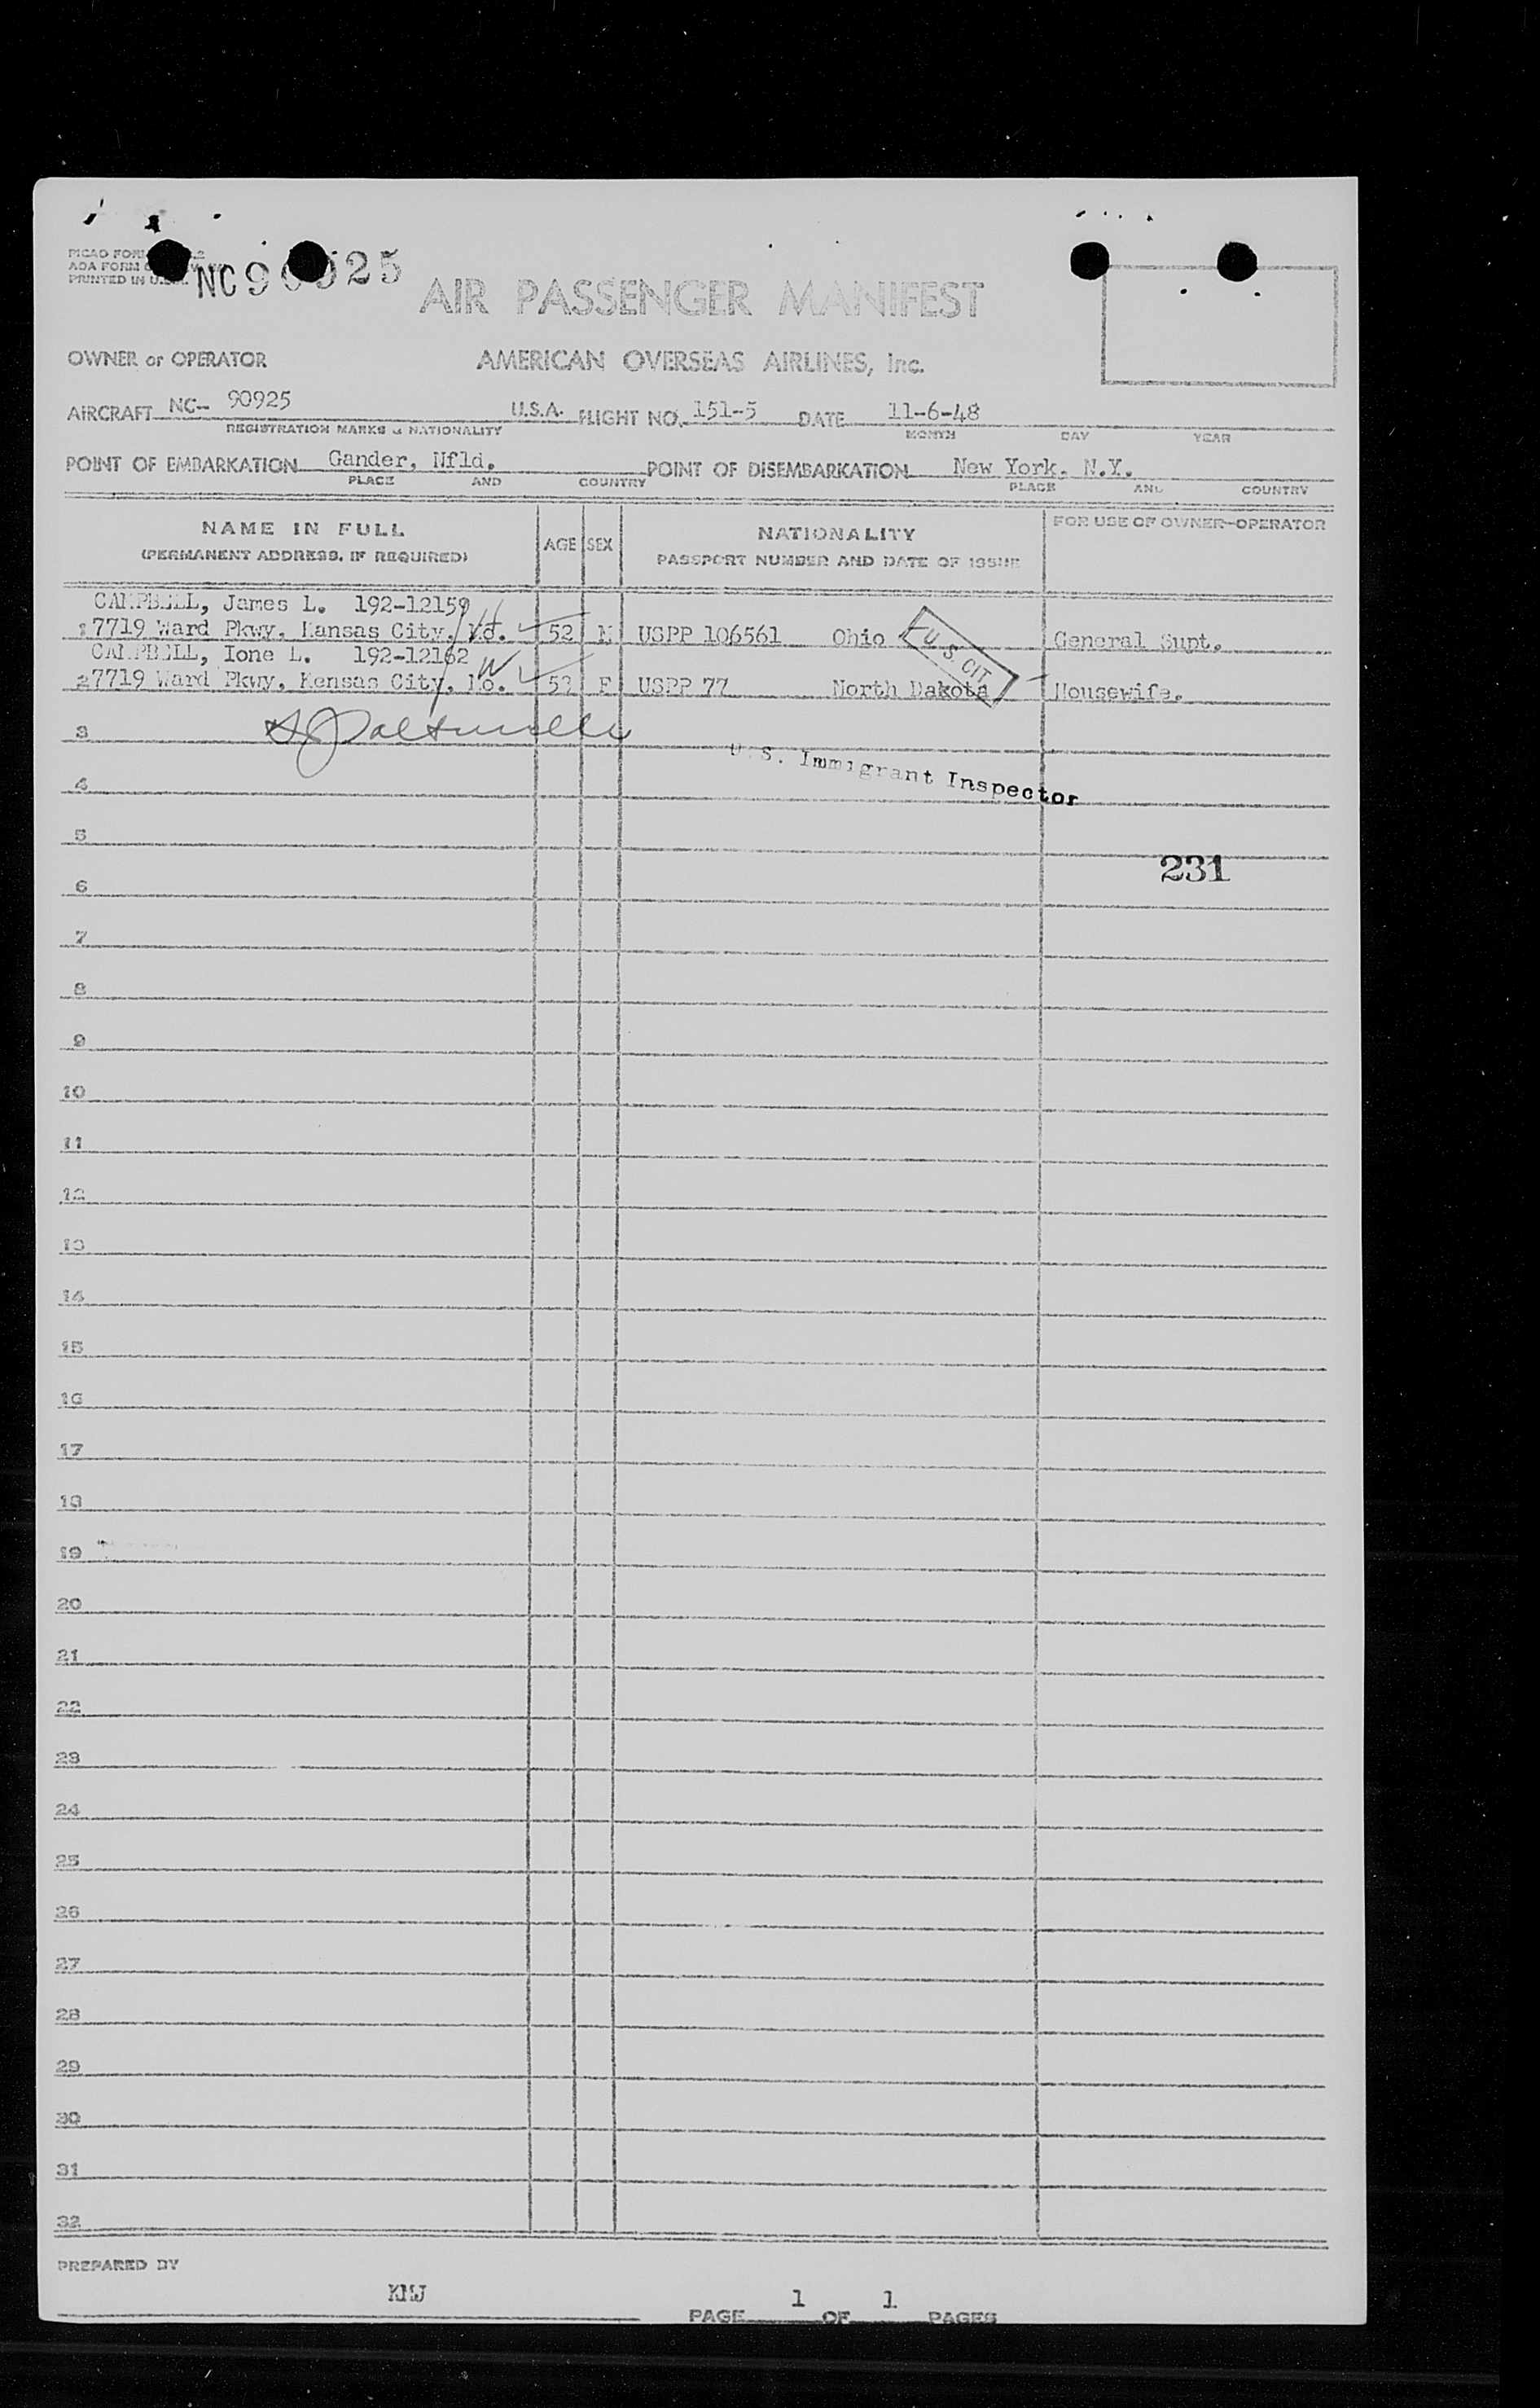 PICAO FORM
AOA FORM
PRINTED IN U.S.A.
NC90925
AIR PASSENGER MANIFEST
OWNER or OPERATOR AMERICAN OVERSEAS AIRLINES, Inc.
AIRCRAFT NC- 90925 U.S.A. FLIGHT NO. 151-5 DATE 11-6-48
REGISTRATION MARKS & NATIONALITY MONTH DAY YEAR
POINT OF EMBARKATION Gander, Nfld. POINT OF DISEMBARKATION New York, N.Y.
PLACE AND COUNTRY PLACE AND COUNTRY
NAME IN FULL AGE SEX NATIONALITY FOR USE OF OWNER-OPERATOR
(PERMANENT ADDRESS, IF REQUIRED) PASSPORT NUMBER AND DATE OF ISSUE
CAMPBELL, James L. 192-12159
1 7719 Ward Pkwy, Kansas City, Mo. 52 M USPP 106561 Ohio U.S. CIT General Supt.
CAMPBELL, Ione L. 192-12162
2 7719 Ward Pkwy, Kensas City, Mo. F USPP 77 North Dakota Housewife.
3
U.S. Immigrant Inspector
4
5
231
6
7
8
9
10
11
12
13
14
15
16
17
18
19
20
21
22
23
24
25
26
27
28
29
30
31
32
PREPARED BY
KMJ
PAGE 1 OF 1 PAGES